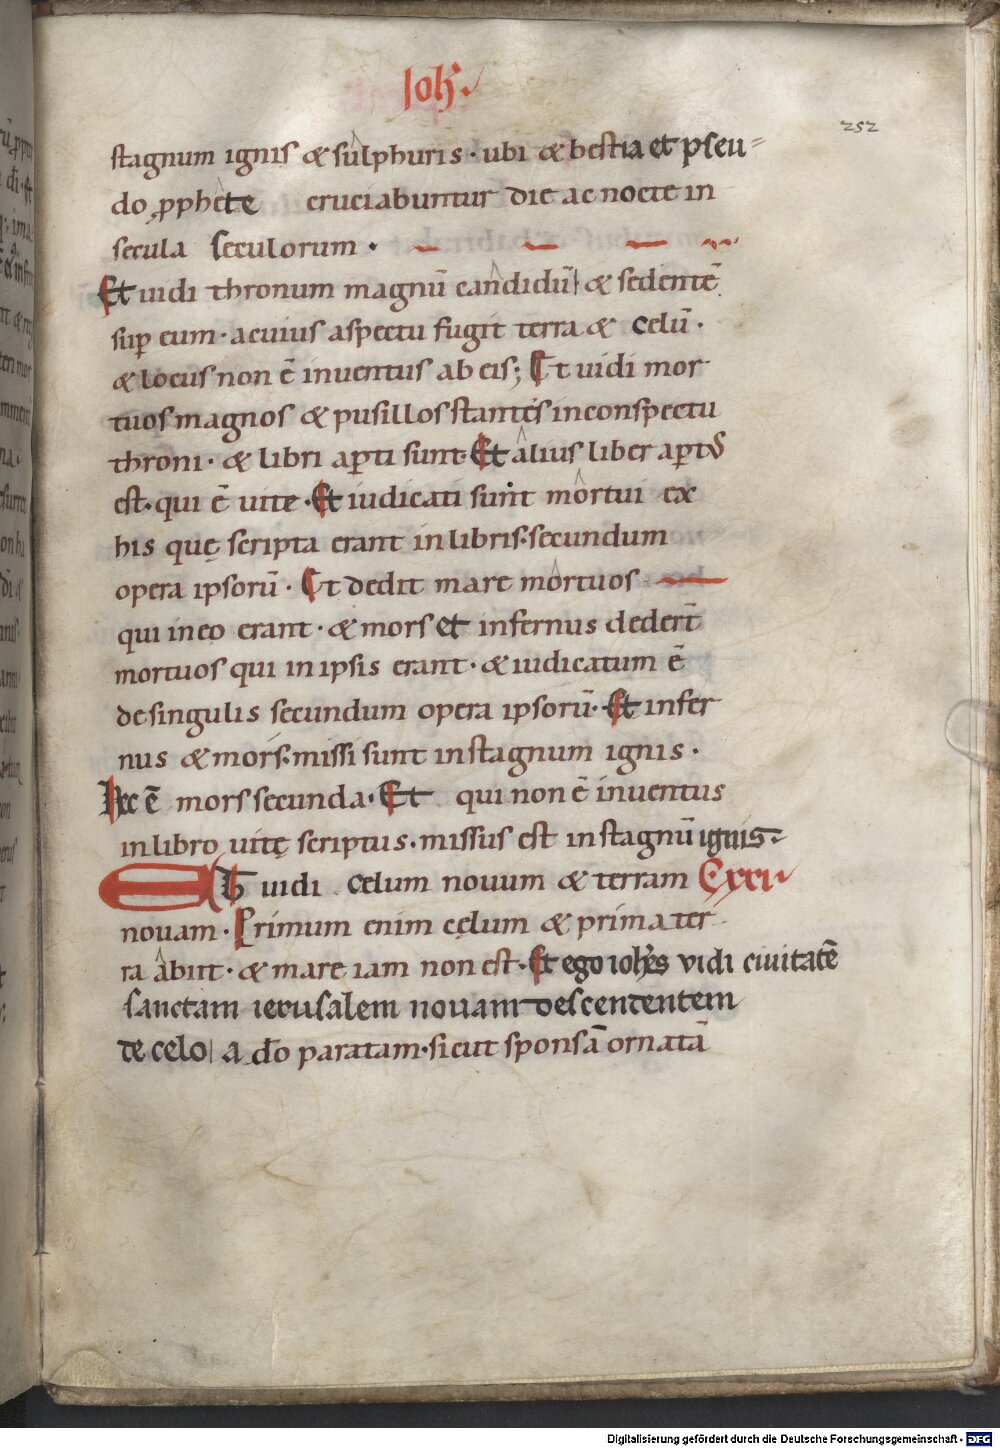 Ioh̅.
252
stagnum ignis & sulphuris · ubi & bestia et pseu=
do ꝓphete cruciabuntur die ac nocte in
secula seculorum ·
Et uidi thronum magnū candidū & sedentē
suꝑ eum · a cuius aspectu fugit terra & celū ·
& locus non ē inuentus ab eis; Et uidi mor
tuos magnos & pusillos stantes in conspectu
throni · & libri aꝑti sunt Et alius liber aꝑt᷒
est · qui ē uite · Et iudicati sunt mortui ex
his quę scripta erant in libris · secundum
opera ipsorū · Et dedit mare mortuos
qui in eo erant · & mors et infernus dedert̄
mortuos qui in ipsis erant · & iudicatum ē
de singulis secundum opera ipsorū · Et infer
nus & mors · missi sunt in stagnum ignis ·
Hec ē mors secunda · Et qui non ē inuentus
in libro uitę scriptus · missus est in stagnū ignis
ET uidi celum nouum & terram Cxxi
nouam · Primum enim cęlum & prima ter
ra abiit · & mare iam non est · Et ego ioh̅es vidi ciuitatē
sanctam ierusalem nouam descendentem
de celo a do̅ paratam · sicut sponsā ornatā
Digitalisierung gefördert durch die Deutsche Forschungsgemeinschaft - DFG